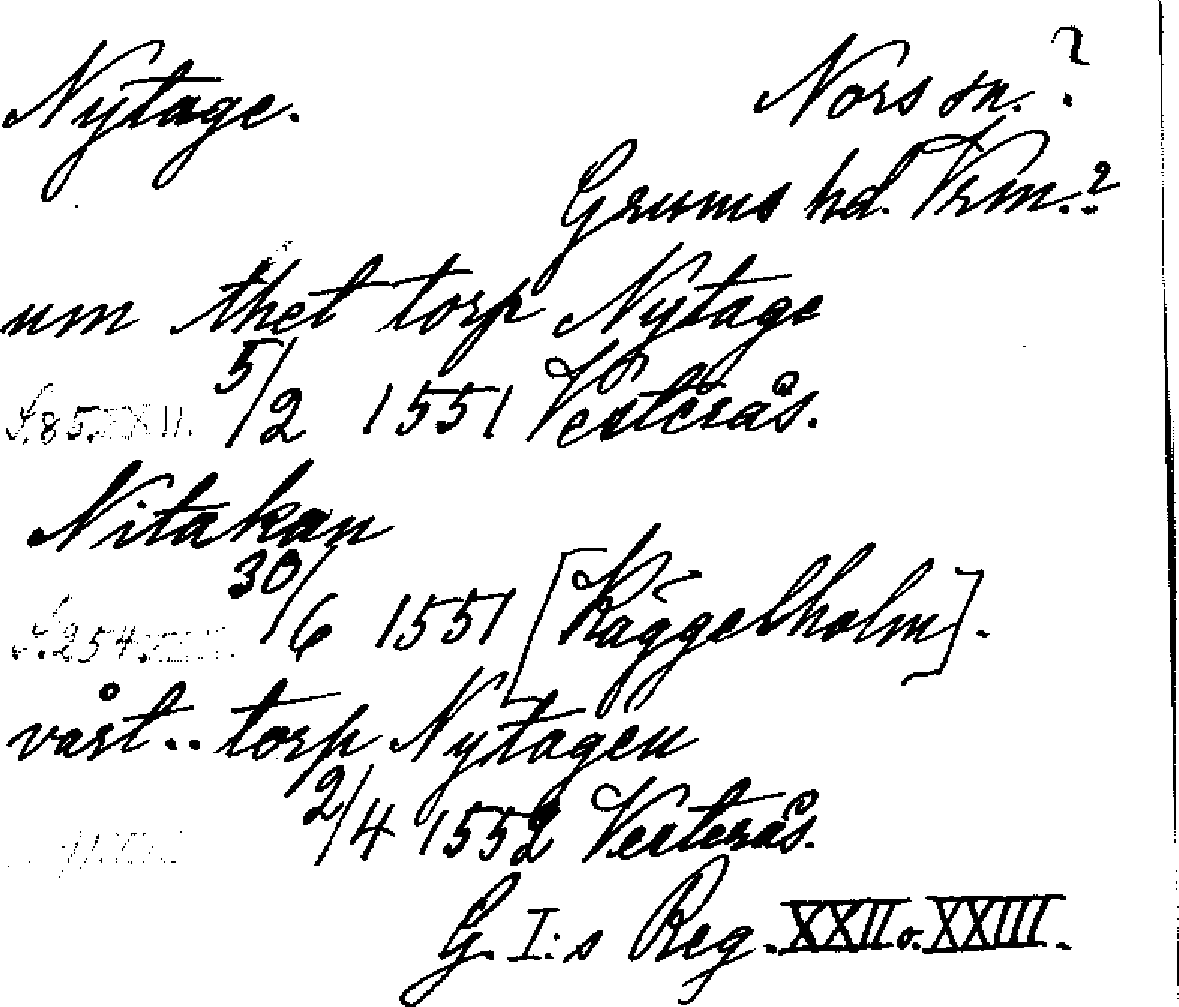 Nytage.
Nors sn. ?
Grums hd. Vrm. ?
um thet torp Nytage
S. 85. XXII. 5/2 1551 Vesterås.
Nitakan
S. 254. 30/6 1551 [Käggelholm].
vårt .. torp Nytagen
2/4 1552 Vesterås.
G. I:s Reg. XXII o. XXIII.